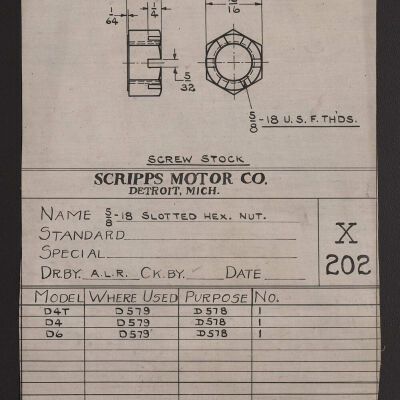 1/64 1/4 16
5/32
5/8-18 U.S.F. TH'DS.
SCREW STOCK
SCRIPPS MOTOR CO.
DETROIT, MICH.
NAME 5/8-18 SLOTTED HEX. NUT.
STANDARD
SPECIAL
X 202
DR.BY. A.L.R. CK.BY. DATE
MODEL WHERE USED PURPOSE NO.
D4T D579 D578 1
D4 D579 D578 1
D6 D579 D578 1